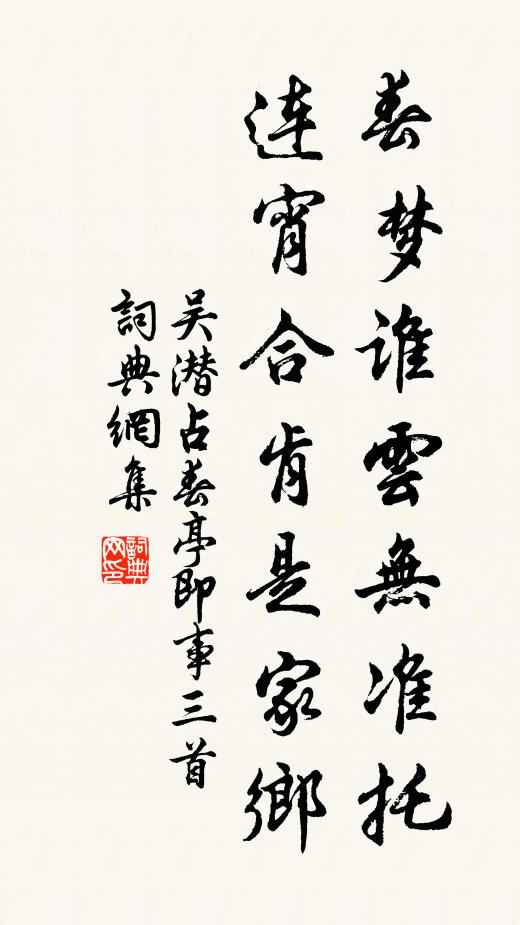 春梦谁雲無准托
連宵合肯是家鄉
吴潜占春亭即事三首
詞典網集
詞典网印